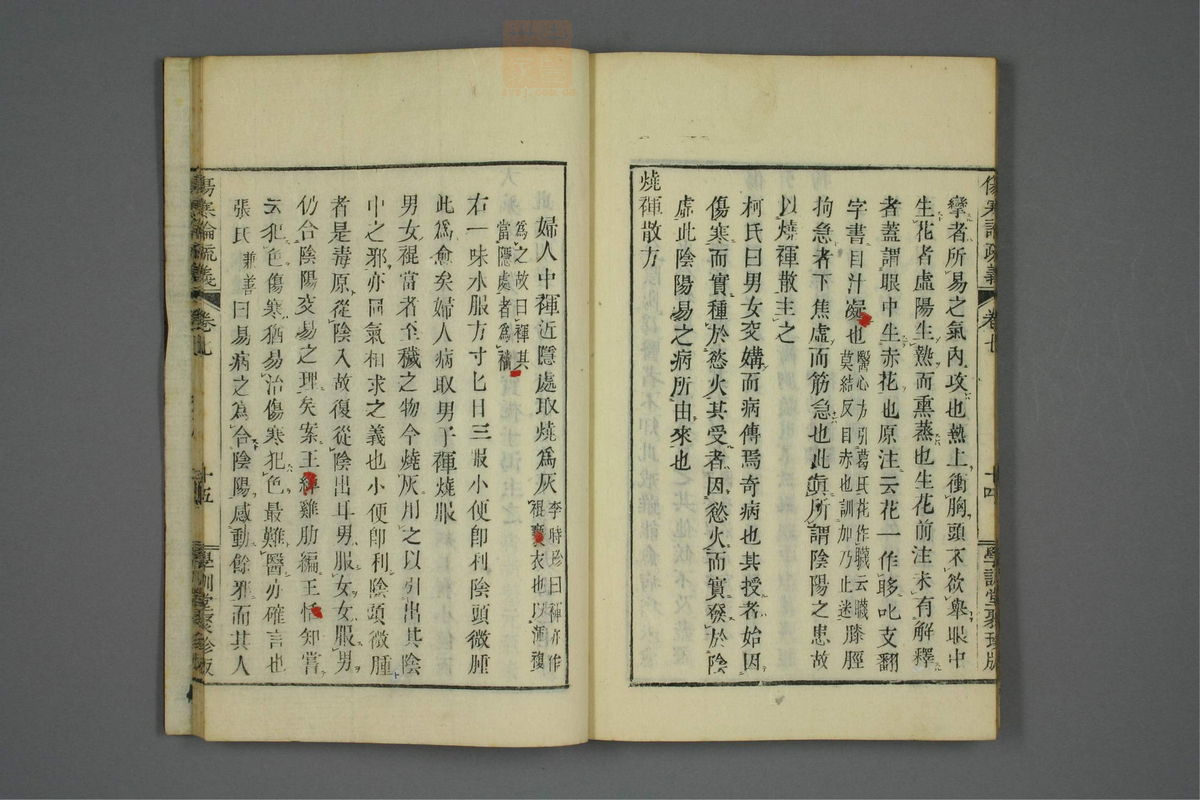 攣者所易之氣內攻也熱上衝胸頭不欲舉眼中
生花者虛陽生熱而熏蒸也生花前注未有解釋
者蓋謂眼中生赤花也原注云花一作眵叱支翻
字書目汁凝也醫心方引葛氏花作䁾云䁾
莫結反目赤也訓加乃止迷膝脛
拘急者下焦虛而筋急也此眞所謂陰陽之患故
以燒裈散主之
柯氏曰男女交媾而病傳焉奇病也其授者始因
傷寒而實種於慾火其受者因慾火而實發於陰
虛此陰陽易之病所由來也
燒裈散方
傷寒論疏義
卷七
十四
學訓堂聚珍版
婦人中裈近隱處取燒爲灰李時珍曰裈亦作
裩褻衣也以渾複
爲之故曰裈其
當隱處者爲穢
右一味水服方寸匕日三服小便卽利陰頭微腫
此爲愈矣婦人病取男子裈燒服
男女裩當者至穢之物今燒灰用之以引出其陰
中之邪亦同氣相求之義也小便卽利陰頭微腫
者是毒原從陰入故復從陰出耳男服女女服男
仍合陰陽交易之理矣案王綸雞肋編王恬知嘗
云犯色傷寒猶易治傷寒犯色最難醫亦確言也
張氏兼善曰易病之爲合陰陽感動餘邪而其人
傷寒論疏義
卷七
十五
學訓堂聚珍版